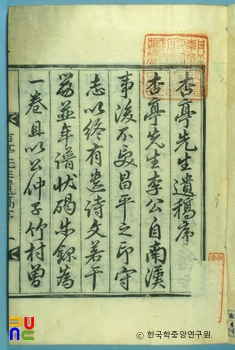 杏亭先生遺稿序
杏亭先生李公自南漢
事後不受昌平之印守
志以終有遺詩文若干
篇並年譜狀碣 錄為
一卷且以公仲子竹村曾
© 한국학중앙연구원.